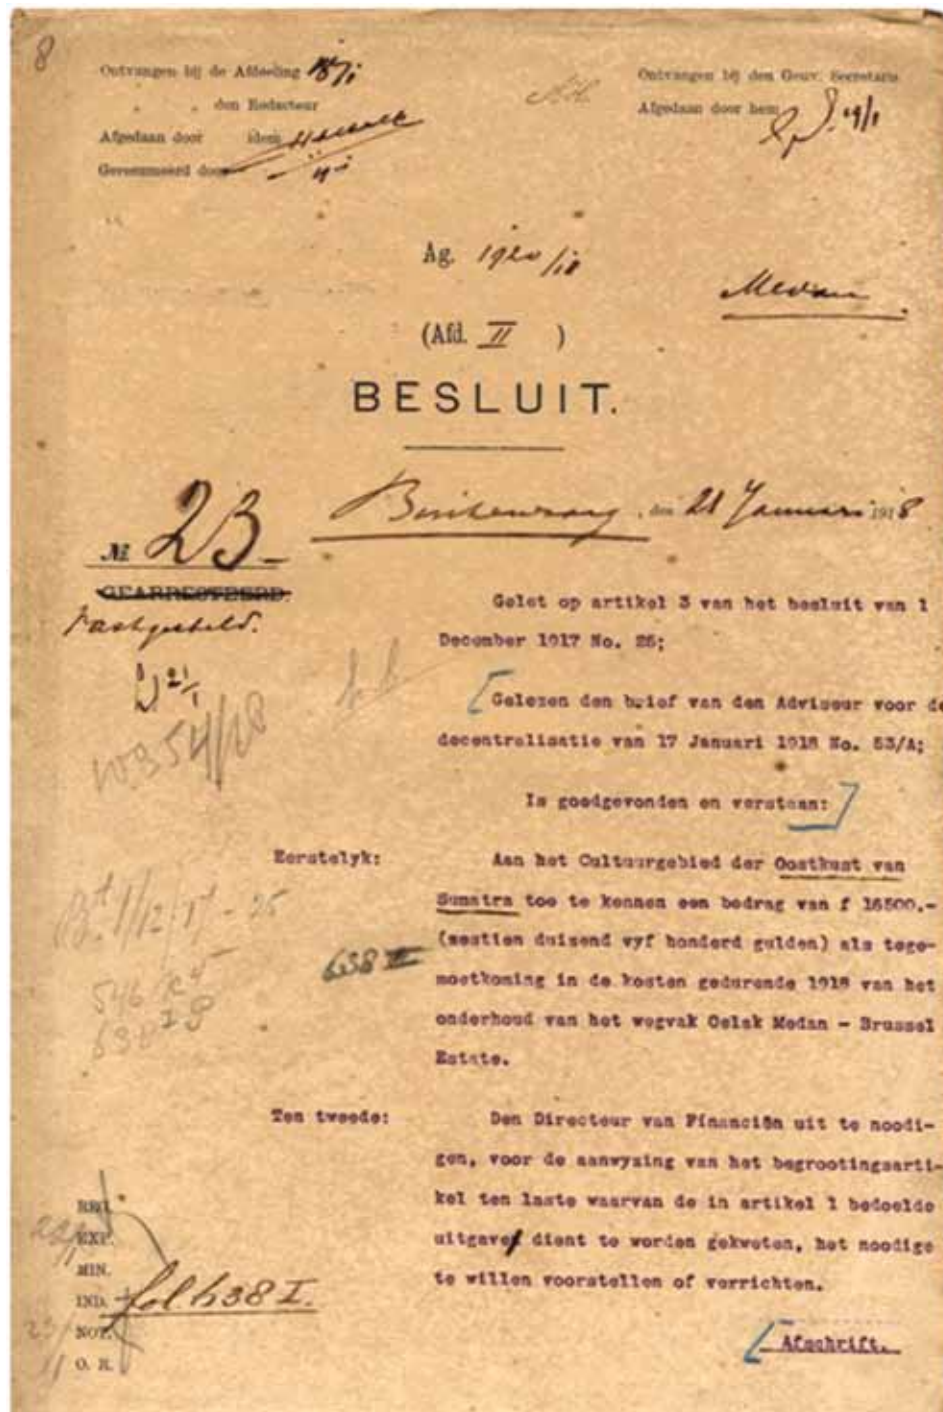 8
Ontvangen bij de Afdeeling 18/1
" " den Redacteur
Afgedaan door idem
Geresumeerd door
Ontvangen bij den Gouv. Secretaris
Afgedaan door hem 19/1
Ag. 1920/18
Medan
(Afd. II )
BESLUIT.
№ 23
Buitenzorg, den 21 Januari 1918
GEARRESTEERD.
Vastgesteld.
21/1
Gelet op artikel 3 van het besluit van 1
December 1917 No. 25;
[Gelezen den brief van den Adviseur voor de
decentralisatie van 17 Januari 1918 No. 53/A;
Is goedgevonden en verstaan:]
Eerstelyk:
Aan het Cultuurgebied der Oostkust van
Sumatra toe te kennen een bedrag van f 16500.-
(zestien duizend vyf honderd gulden) als tege-
moetkoming in de kosten gedurende 1918 van het
onderhoud van het wegvak Gelak Medan - Brussel
Estate.
Bt 1/12/17 - 25
638 II
546
638
Ten tweede:
Den Directeur van Financiën uit te noodi-
gen, voor de aanwyzing van het begrootingsarti-
kel ten laste waarvan de in artikel 1 bedoelde
uitgave dient te worden gekweten, het noodige
te willen voorstellen of verrichten.
REG.
EXP.
MIN.
IND.
NOT.
O. R.
fol 638 I.
[Afschrift.